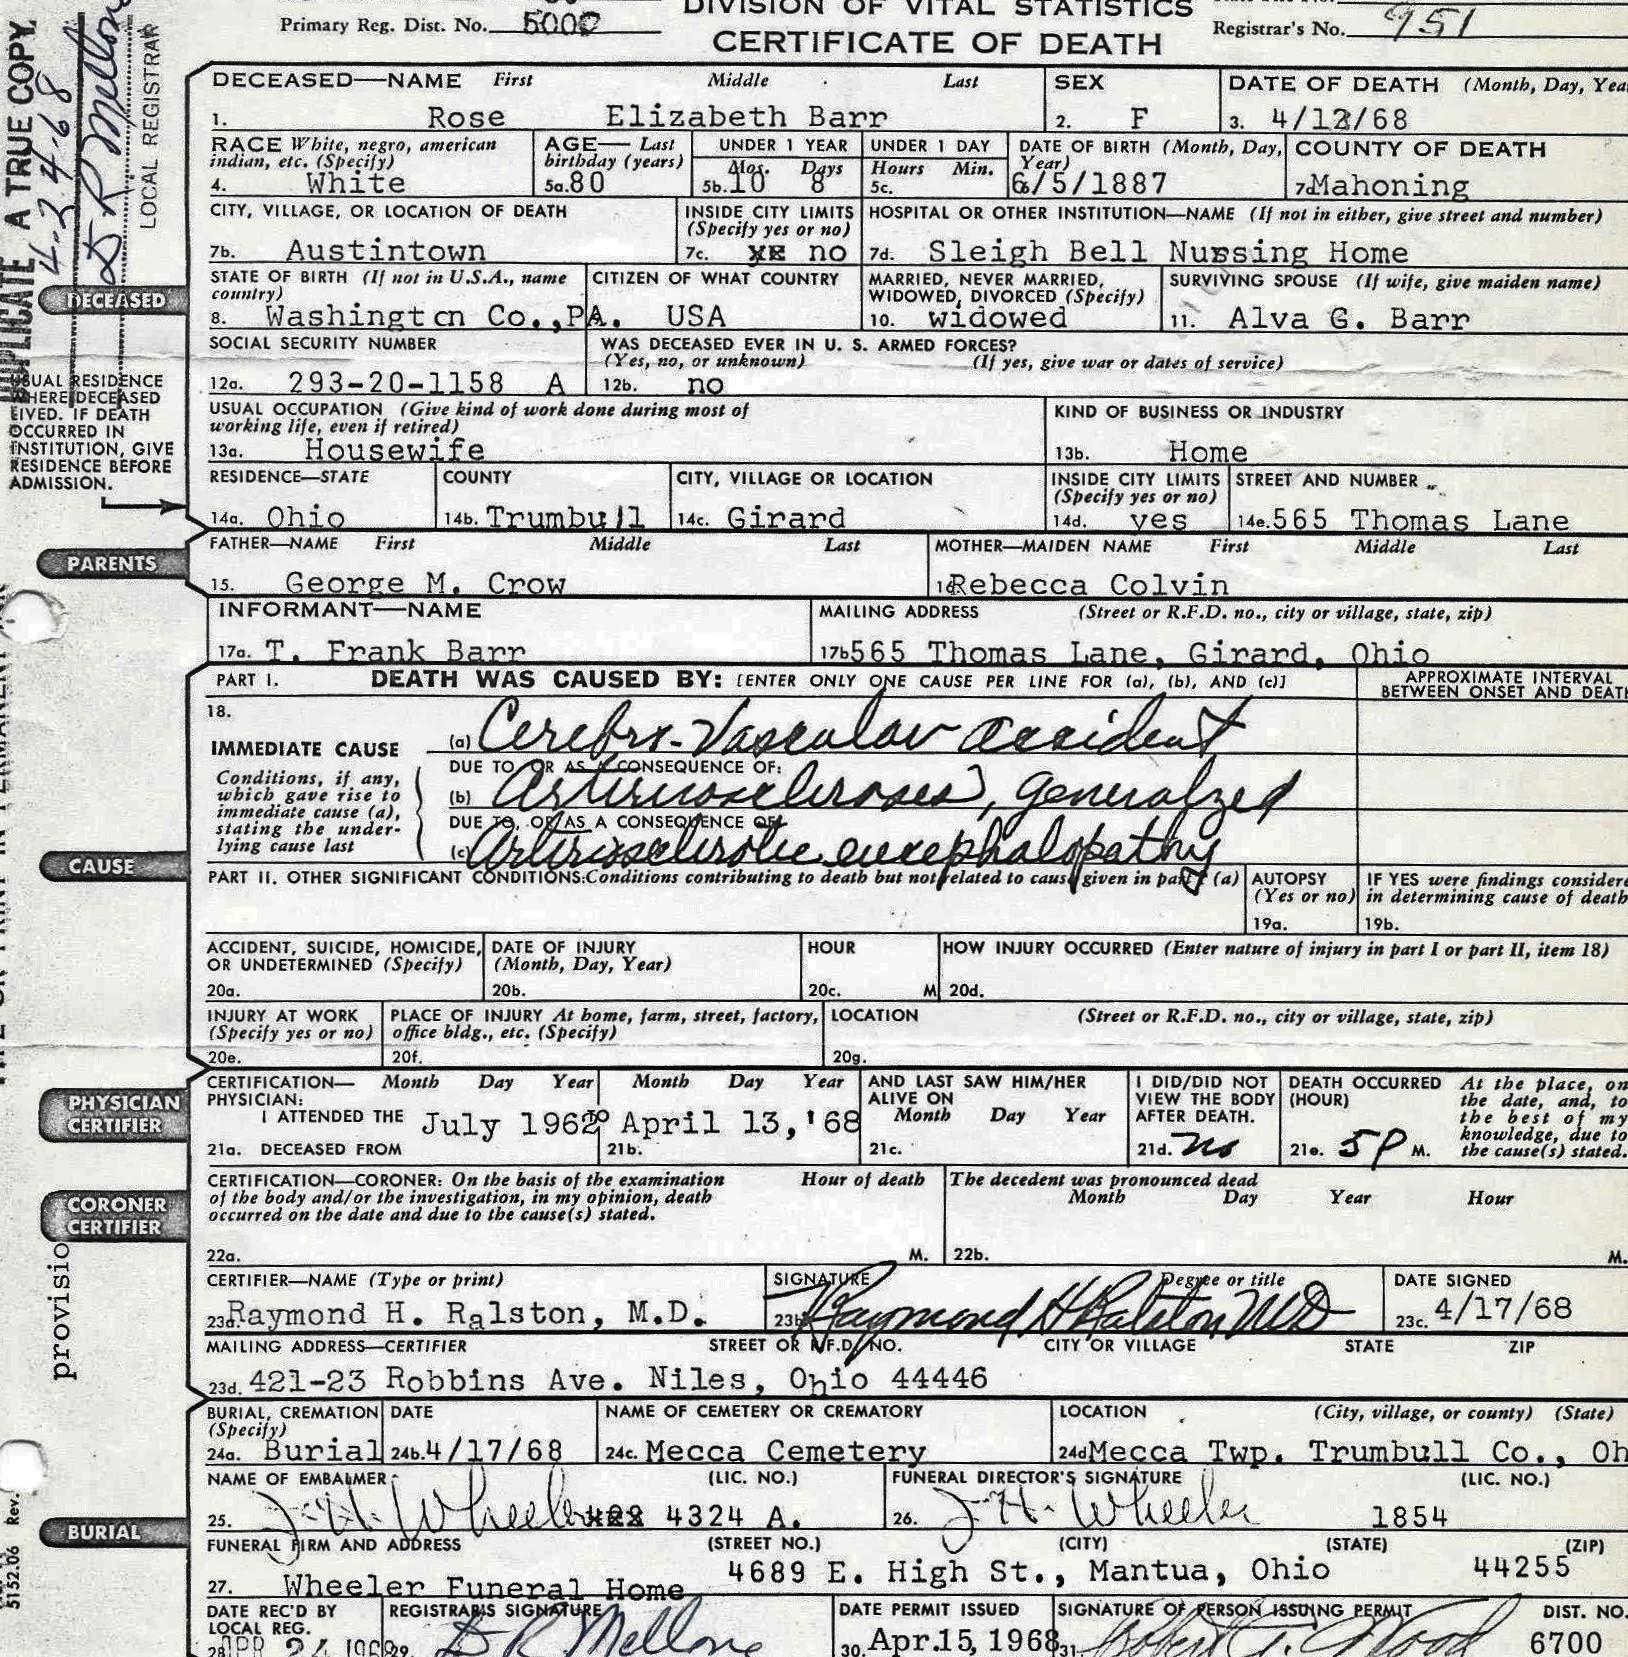 Primary Reg. Dist. No. 5000
DIVISION OF VITAL STATISTICS
Registrar's No. 951
CERTIFICATE OF DEATH
DECEASED—NAME First Middle Last SEX DATE OF DEATH (Month, Day, Yea
1. Rose Elizabeth Barr 2. F 3. 4/13/68
RACE White, negro, american AGE—Last UNDER 1 YEAR UNDER 1 DAY DATE OF BIRTH (Month, Day, COUNTY OF DEATH
indian, etc. (Specify) birthday (years) Mos. Days Hours Min. Year)
4. White 5a. 80 5b. 10 8 5c. 6/5/1887 7a Mahoning
CITY, VILLAGE, OR LOCATION OF DEATH INSIDE CITY LIMITS HOSPITAL OR OTHER INSTITUTION—NAME (If not in either, give street and number)
(Specify yes or no)
7b. Austintown 7c. no 7d. Sleigh Bell Nursing Home
STATE OF BIRTH (If not in U.S.A., name CITIZEN OF WHAT COUNTRY MARRIED, NEVER MARRIED, SURVIVING SPOUSE (If wife, give maiden name)
country) WIDOWED, DIVORCED (Specify)
8. Washington Co.,PA. USA 10. widowed 11. Alva G. Barr
SOCIAL SECURITY NUMBER WAS DECEASED EVER IN U. S. ARMED FORCES?
(Yes, no, or unknown) (If yes, give war or dates of service)
12a. 293-20-1158 A 12b. no
USUAL OCCUPATION (Give kind of work done during most of KIND OF BUSINESS OR INDUSTRY
working life, even if retired)
13a. Housewife 13b. Home
RESIDENCE—STATE COUNTY CITY, VILLAGE OR LOCATION INSIDE CITY LIMITS STREET AND NUMBER
(Specify yes or no)
14a. Ohio 14b. Trumbull 14c. Girard 14d. yes 14e. 565 Thomas Lane
FATHER—NAME First Middle Last MOTHER—MAIDEN NAME First Middle Last
15. George M. Crow 16 Rebecca Colvin
INFORMANT—NAME MAILING ADDRESS (Street or R.F.D. no., city or village, state, zip)
17a. T. Frank Barr 17b 565 Thomas Lane, Girard, Ohio
PART I. DEATH WAS CAUSED BY: [ENTER ONLY ONE CAUSE PER LINE FOR (a), (b), AND (c)] APPROXIMATE INTERVAL
BETWEEN ONSET AND DEATH
18.
IMMEDIATE CAUSE (a) Cerebro-Vascular accident
DUE TO, OR AS A CONSEQUENCE OF:
Conditions, if any,
which gave rise to (b) Arteriosclerosis, generalized
immediate cause (a),
stating the under- DUE TO, OR AS A CONSEQUENCE OF:
lying cause last (c) Arteriosclerotic encephalopathy
PART II. OTHER SIGNIFICANT CONDITIONS: Conditions contributing to death but not related to cause given in part I (a) AUTOPSY IF YES were findings considere
(Yes or no) in determining cause of death
19a. 19b.
ACCIDENT, SUICIDE, HOMICIDE, DATE OF INJURY HOUR HOW INJURY OCCURRED (Enter nature of injury in part I or part II, item 18)
OR UNDETERMINED (Specify) (Month, Day, Year)
20a. 20b. 20c. M 20d.
INJURY AT WORK PLACE OF INJURY At home, farm, street, factory, LOCATION (Street or R.F.D. no., city or village, state, zip)
(Specify yes or no) office bldg., etc. (Specify)
20e. 20f. 20g.
CERTIFICATION— Month Day Year Month Day Year AND LAST SAW HIM/HER I DID/DID NOT DEATH OCCURRED At the place, on
PHYSICIAN: ALIVE ON VIEW THE BODY (HOUR) the date, and, to
I ATTENDED THE July 1962 to April 13,'68 Month Day Year AFTER DEATH. the best of my
knowledge, due to
21a. DECEASED FROM 21b. 21c. 21d. no 21e. 5P M. the cause(s) stated.
CERTIFICATION—CORONER: On the basis of the examination Hour of death The decedent was pronounced dead
of the body and/or the investigation, in my opinion, death Month Day Year Hour
occurred on the date and due to the cause(s) stated.
22a. M. 22b. M.
CERTIFIER—NAME (Type or print) SIGNATURE Degree or title DATE SIGNED
23a. Raymond H. Ralston, M.D. 23b Raymond H Ralston MD 23c. 4/17/68
MAILING ADDRESS—CERTIFIER STREET OR R.F.D. NO. CITY OR VILLAGE STATE ZIP
23d. 421-23 Robbins Ave. Niles, Ohio 44446
BURIAL, CREMATION DATE NAME OF CEMETERY OR CREMATORY LOCATION (City, village, or county) (State)
(Specify)
24a. Burial 24b. 4/17/68 24c. Mecca Cemetery 24d Mecca Twp. Trumbull Co., Oh
NAME OF EMBALMER (LIC. NO.) FUNERAL DIRECTOR'S SIGNATURE (LIC. NO.)
25. J. H. Wheeler 4324 A. 26. J. H. Wheeler 1854
FUNERAL FIRM AND ADDRESS (STREET NO.) (CITY) (STATE) (ZIP)
27. Wheeler Funeral Home 4689 E. High St., Mantua, Ohio 44255
DATE REC'D BY REGISTRAR'S SIGNATURE DATE PERMIT ISSUED SIGNATURE OF PERSON ISSUING PERMIT DIST. NO.
LOCAL REG.
28 APR 24 1968 29. D R Mellone 30. Apr.15, 1968 31. 6700
DECEASED
USUAL RESIDENCE
WHERE DECEASED
LIVED. IF DEATH
OCCURRED IN
INSTITUTION, GIVE
RESIDENCE BEFORE
ADMISSION.
PARENTS
CAUSE
PHYSICIAN
CERTIFIER
CORONER
CERTIFIER
BURIAL
DUPLICATE A TRUE COPY.
4-24-68
D R Mellone
LOCAL REGISTRAR
provisio
5152.06 Rev.